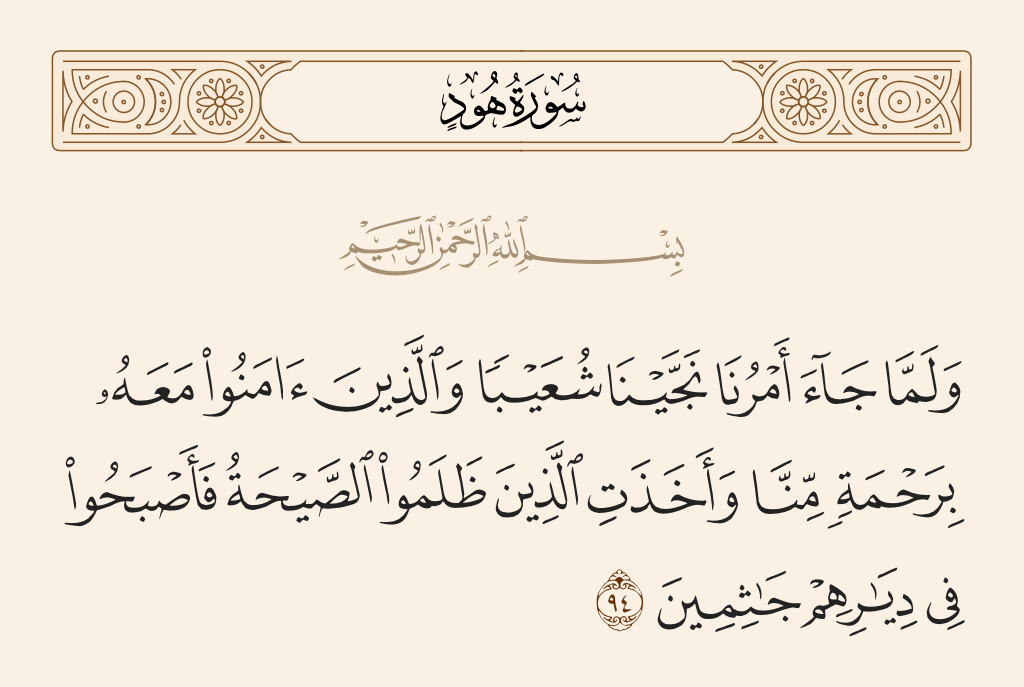 سُورَةُ هُودٍ
بِسْمِ ٱللَّهِ ٱلرَّحْمَٰنِ ٱلرَّحِيمِ
وَلَمَّا جَآءَ أَمْرُنَا نَجَّيْنَا شُعَيْبًا وَٱلَّذِينَ ءَامَنُوا۟ مَعَهُۥ
بِرَحْمَةٍ مِّنَّا وَأَخَذَتِ ٱلَّذِينَ ظَلَمُوا۟ ٱلصَّيْحَةُ فَأَصْبَحُوا۟
فِى دِيَٰرِهِمْ جَٰثِمِينَ ٩٤